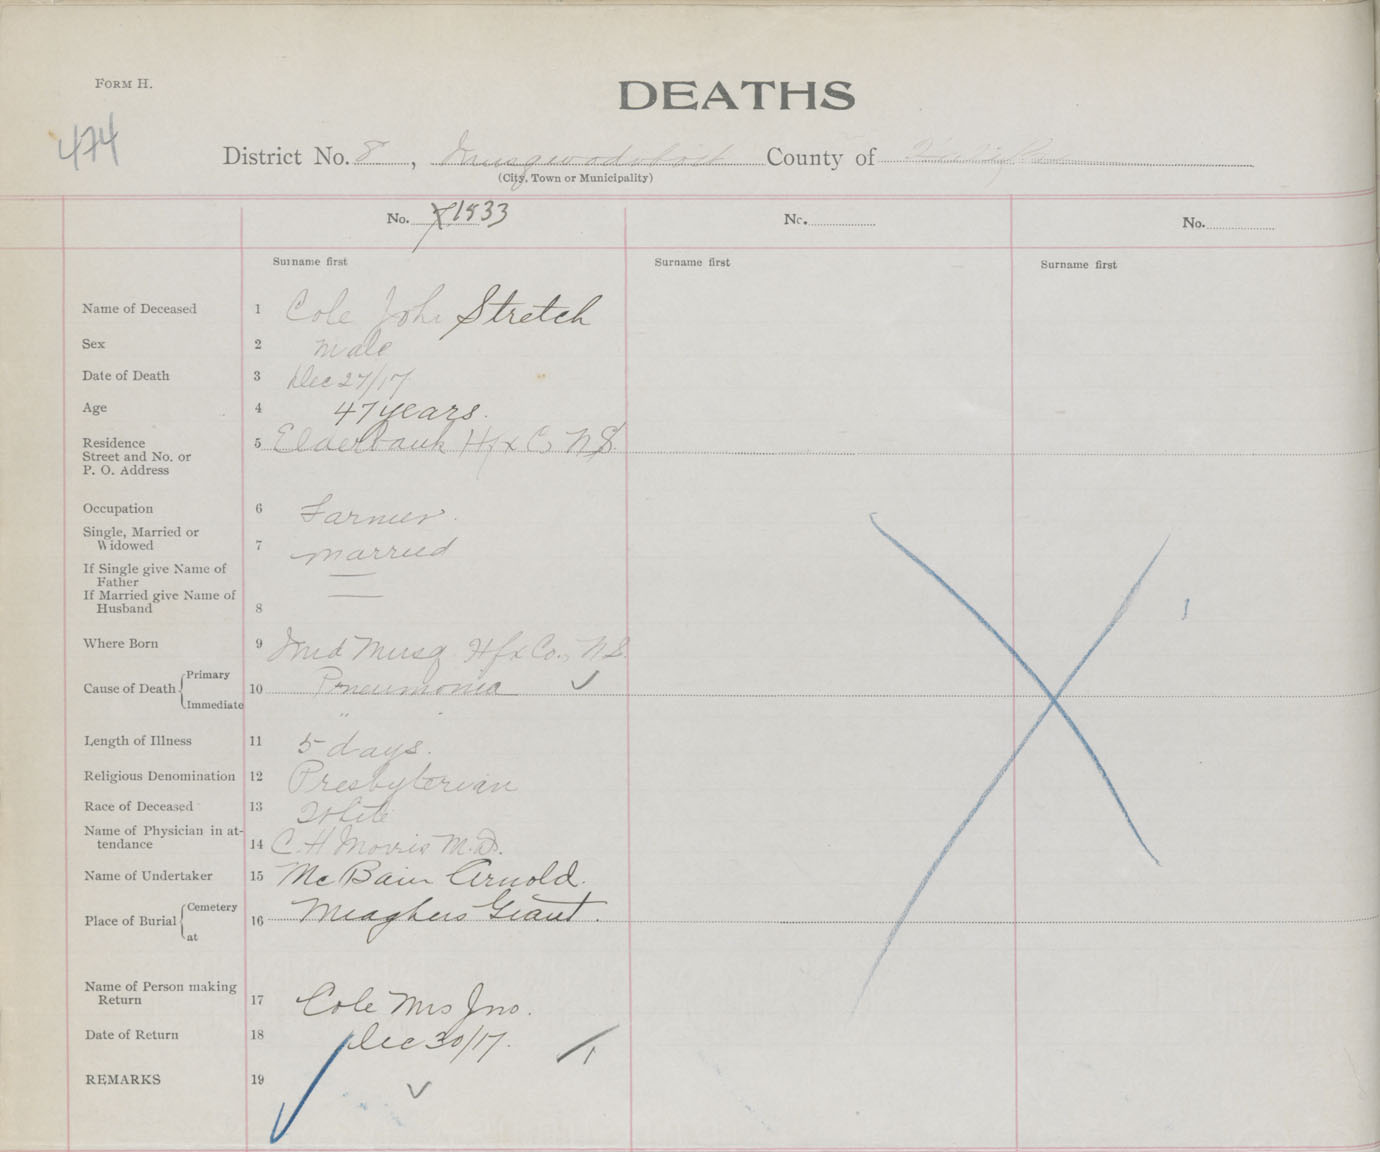 FORM H.
DEATHS
474
District No. 8, Musquodoboit County of Halifax
(City, Town or Municipality)
No. 7 1833 No. No.
Surname first Surname first Surname first
Name of Deceased 1 Cole John Stretch
Sex 2 Male
Date of Death 3 Dec 27/17
Age 4 47 years.
Residence 5 Elderbank Hfx Co NS.
Street and No. or
P. O. Address
Occupation 6 Farmer.
Single, Married or
Widowed 7 Married
If Single give Name of
Father
If Married give Name of
Husband 8
Where Born 9 Mid Musq Hfx Co., N.S.
Primary
Cause of Death 10 Pneumonia ✓
Immediate "
Length of Illness 11 5 days.
Religious Denomination 12 Presbyterian
Race of Deceased 13 White
Name of Physician in at-
tendance 14 C. H Morris M.D.
Name of Undertaker 15 McBain Arnold.
Cemetery
Place of Burial 16 Meaghers Grant.
at
Name of Person making
Return 17 Cole Mrs Jno.
Date of Return 18 Dec 30/17.
REMARKS 19